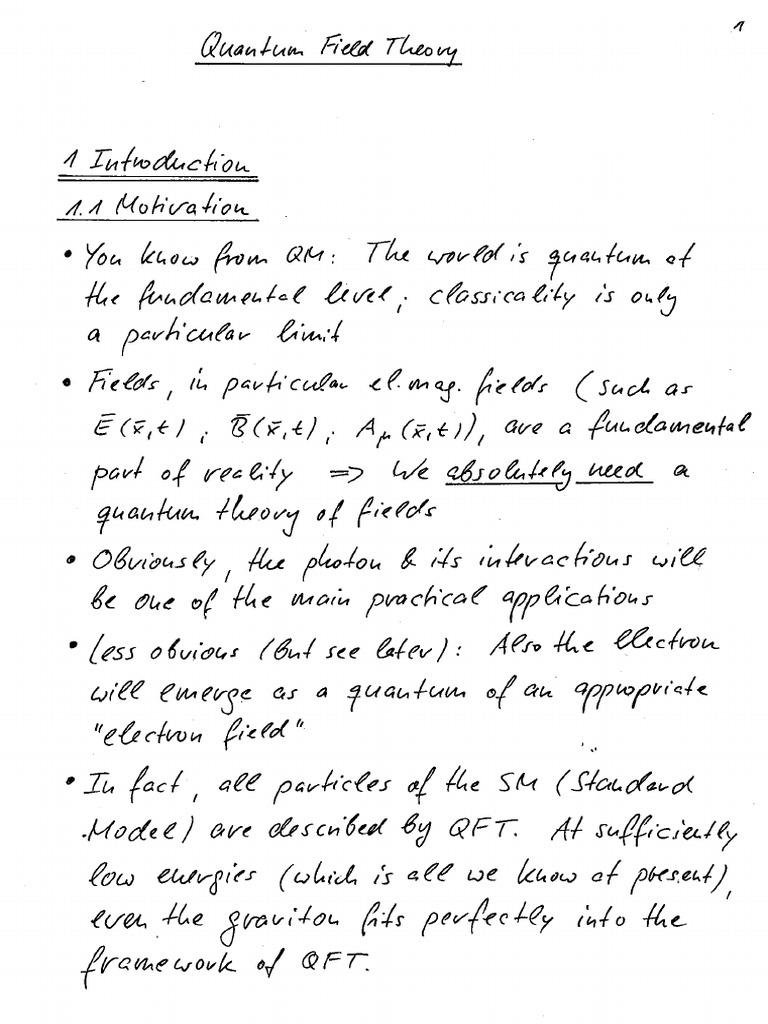 1
Quantum Field Theory
1 Introduction
1.1 Motivation
• You know from QM: The world is quantum at
the fundamental level; classicality is only
a particular limit
• Fields, in particular el.mag. fields (such as
E̅(x̅,t) ; B̅(x̅,t) ; Aμ(x̅,t)), are a fundamental
part of reality ⇒ We absolutely need a
quantum theory of fields
• Obviously, the photon & its interactions will
be one of the main practical applications
• Less obvious (but see later): Also the electron
will emerge as a quantum of an appropriate
"electron field"
• In fact, all particles of the SM (Standard
Model) are described by QFT. At sufficiently
low energies (which is all we know at present),
even the graviton fits perfectly into the
framework of QFT.